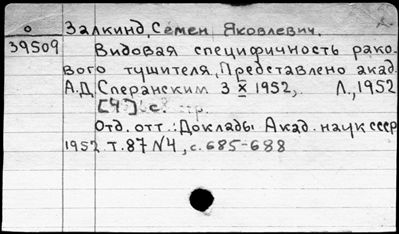 о Залкинд, Семен Яковлевич.
39509 Видовая специфичность рако-
вого тушителя, Представлено акад.
А.Д. Сперанским 3 X 1952, Л., 1952
[4] с.
Отд. отт.: Доклады Акад. наук СССР
1952 т.87 N4, с.685-688